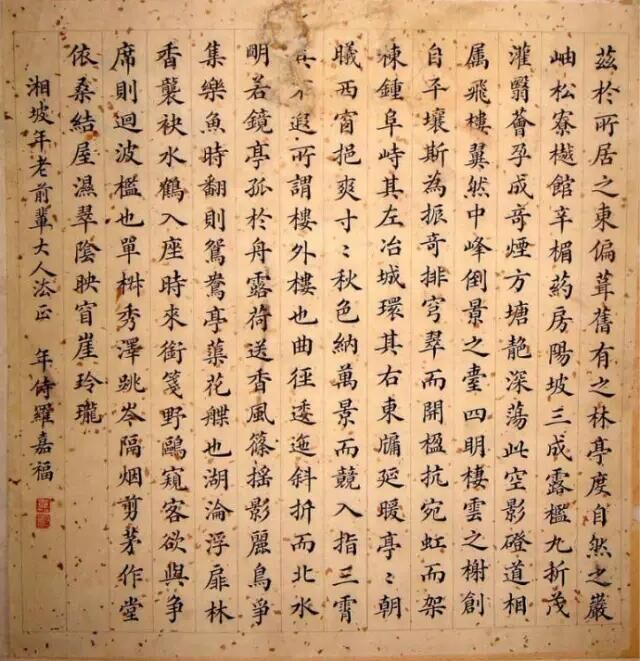 茲於所居之東偏葺舊有之林亭度自然之巖
岫松寮樾館辛楣葯房陽坡三成露檻九折茂
灌翳薈孕成奇煙方塘艷深蕩此空影磴道相
属飛樓翼然中峰倒景之臺四明棲雲之榭創
自平壤斯為振奇排穹翠而開楹抗宛虹而架
棟鍾阜峙其左冶城環其右東牖延暖亭〻朝
曦西窗挹爽寸〻秋色納萬景而競入指三霄
其不遐所謂樓外樓也曲徑逶迤斜折而北水
明若鏡亭孤於舟露荷送香風篠搖影麗鳥爭
集樂魚時翻則鴛鴦亭藻花艓也湖淪浮扉林
香襲袂水鶴入座時來銜箋野鷗窺客欲與爭
席則迴波檻也單椒秀澤跳岑隔烟剪茅作堂
依桑結屋濕翠陰映窗崖玲瓏
湘坡年老前輩大人法正 年侍羅嘉福